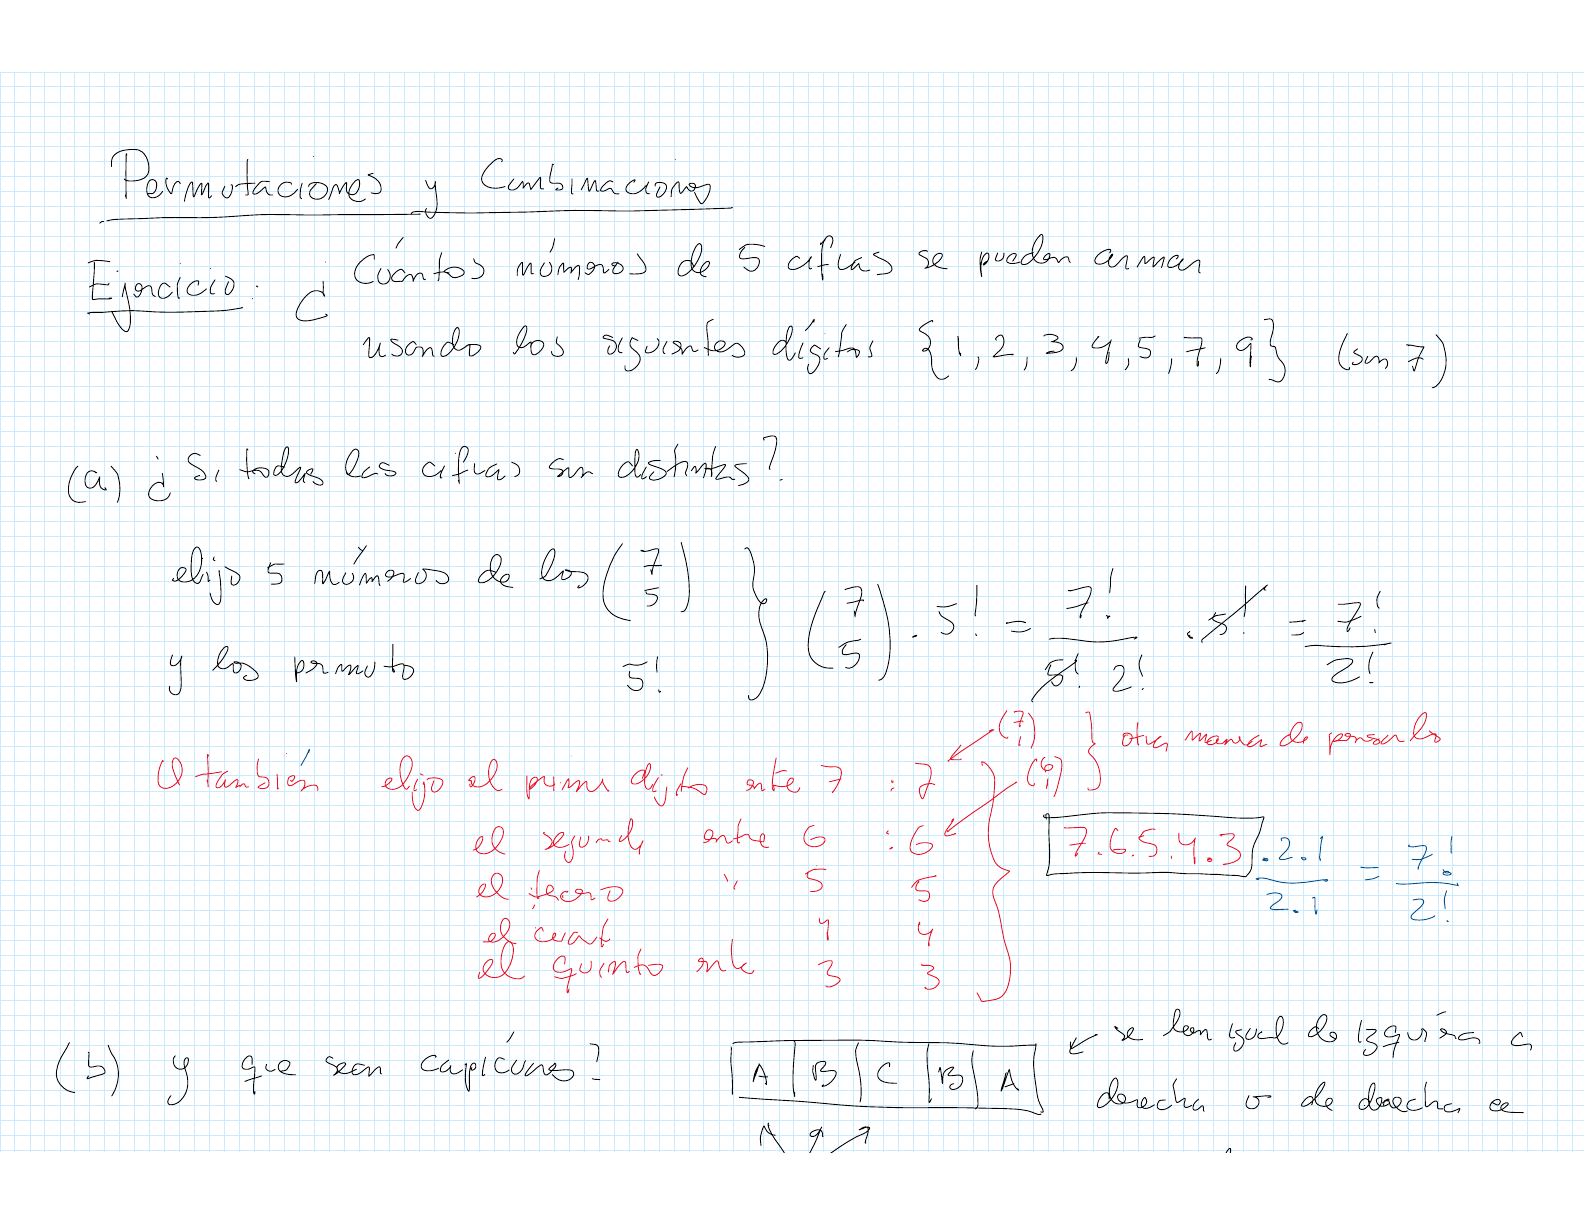 Permutaciones y Combinaciones
Ejercicio: ¿ Cuántos números de 5 cifras se pueden armar
usando los siguientes dígitos {1, 2, 3, 4, 5, 7, 9} (son 7)
(a) ¿ Si todas las cifras son distintas?
elijo 5 números de los (7 5)
y los permuto 5!
(7 5) . 5! = 7! / 5! 2! . 5! = 7! / 2!
O también elijo el primer dígito entre 7 : 7 (7 1) } otra manera de pensarlo
el segundo entre 6 : 6 (6 1)
7.6.5.4.3 .2.1 / 2.1 = 7! / 2!
el tercero " 5 5
el cuart 4 4
el quinto entre 3 3
(b) y que sean capicúas? A B C B A ← se leen igual de izquierda a
derecha o de derecha a